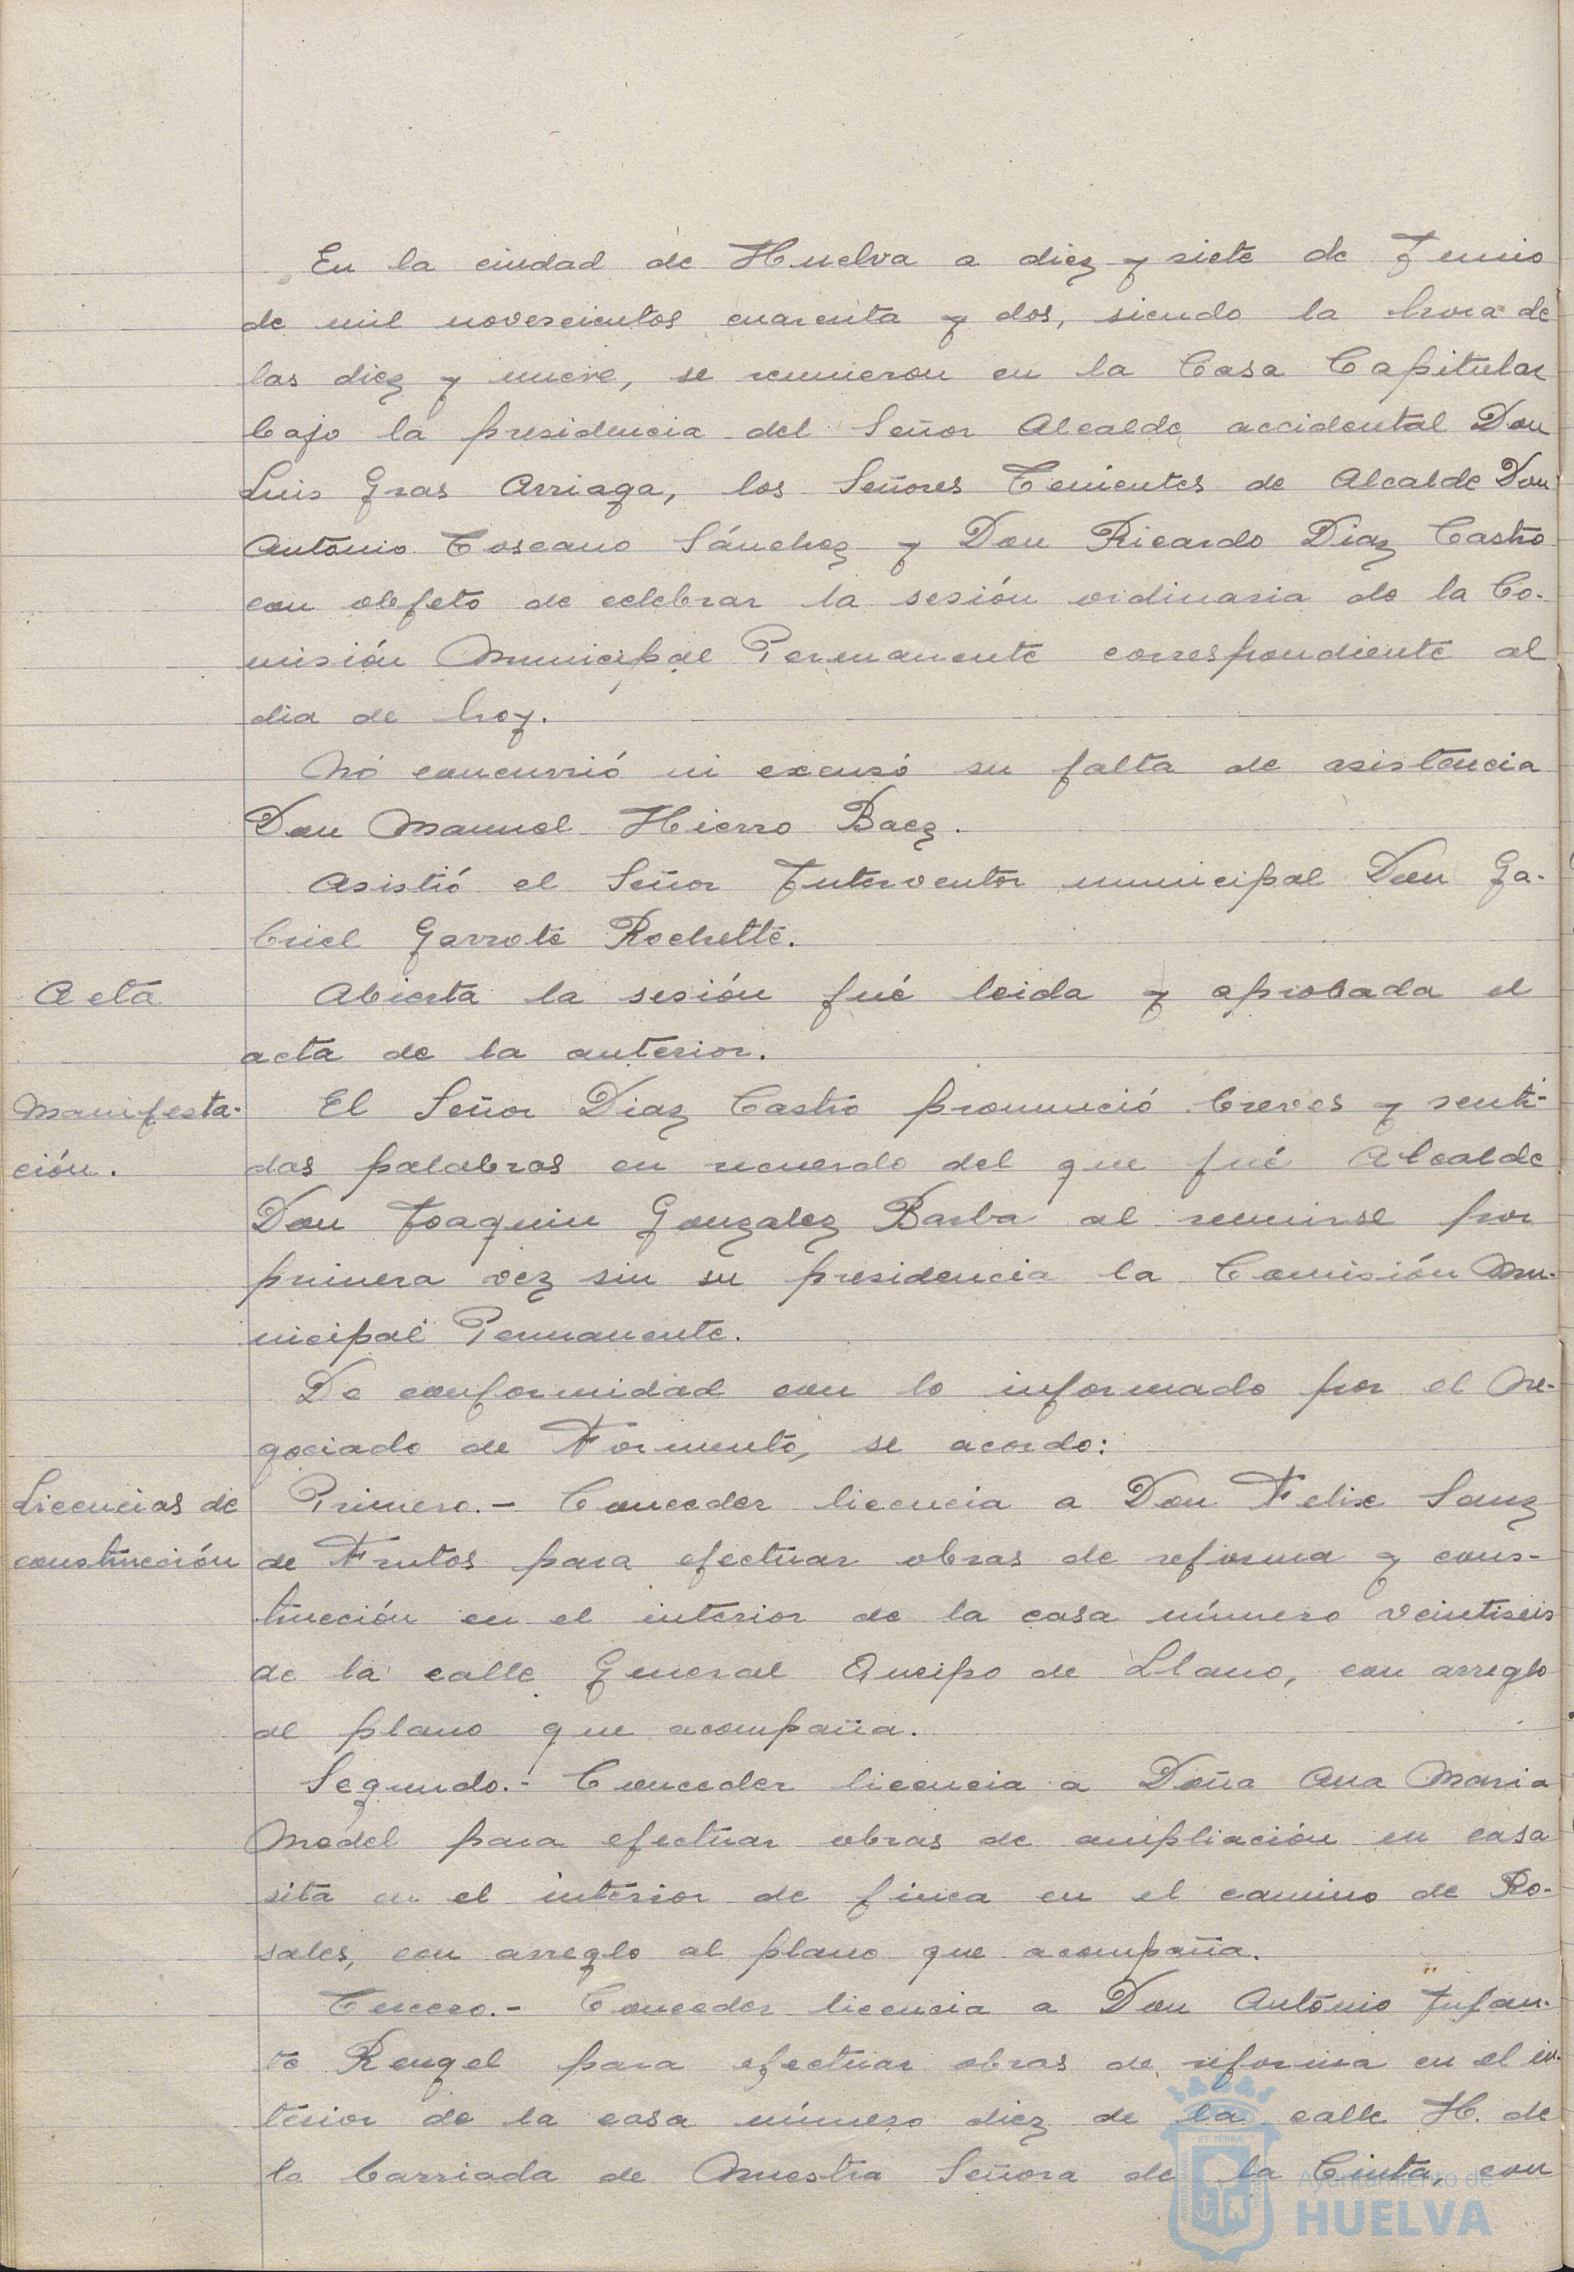 En la ciudad de Huelva a diez y siete de Junio
de mil novescientos cuarenta y dos, siendo la hora de
las diez y nueve, se reunieron en la Casa Capitular
bajo la presidencia del Señor Alcalde accidental Don
Luis Gras Arriaga, los Señores Tenientes de Alcalde Don
Antonio Toscano Sánchez y Don Ricardo Diaz Castro
con objeto de celebrar la sesión ordinaria de la Co-
misión Municipal Permanente correspondiente al
dia de hoy.
Nó concurrió ni excusó su falta de asistencia
Don Manuel Hierro Baez.
Asistió el Señor Interventor municipal Don Ga-
briel Garrote Rochette.
Acta
Abierta la sesión fué leida y aprobada el
acta de la anterior.
Manifesta-
ción.
El Señor Diaz Castro pronunció breves y senti-
das palabras en recuerdo del que fué Alcalde
Don Joaquin Gonzalez Barba al reunirse por
primera vez sin su presidencia la Comisión Mu-
nicipal Permanente.
De conformidad con lo informado por el Ne-
gociado de Formento, se acordo:
Licencias de
construcción
Primero.- Conceder licencia a Don Felix Sanz
de Frutos para efectuar obras de reforma y cons-
trucción en el interior de la casa número veintiseis
de la calle General Queipo de Llano, con arreglo
al plano que acompaña.
Segundo.- Conceder licencia a Doña Ana Maria
Model para efectuar obras de ampliación en casa
sita en el interior de finca en el camino de Ro-
sales, con arreglo al plano que acompaña.
Tercero.- Conceder licencia a Don Antonio Infan-
te Rengel para efectuar obras de reforma en el in-
terior de la casa número diez de la calle H. de
la barriada de Nuestra Señora de la Cinta, con
Ayuntamiento de
HUELVA